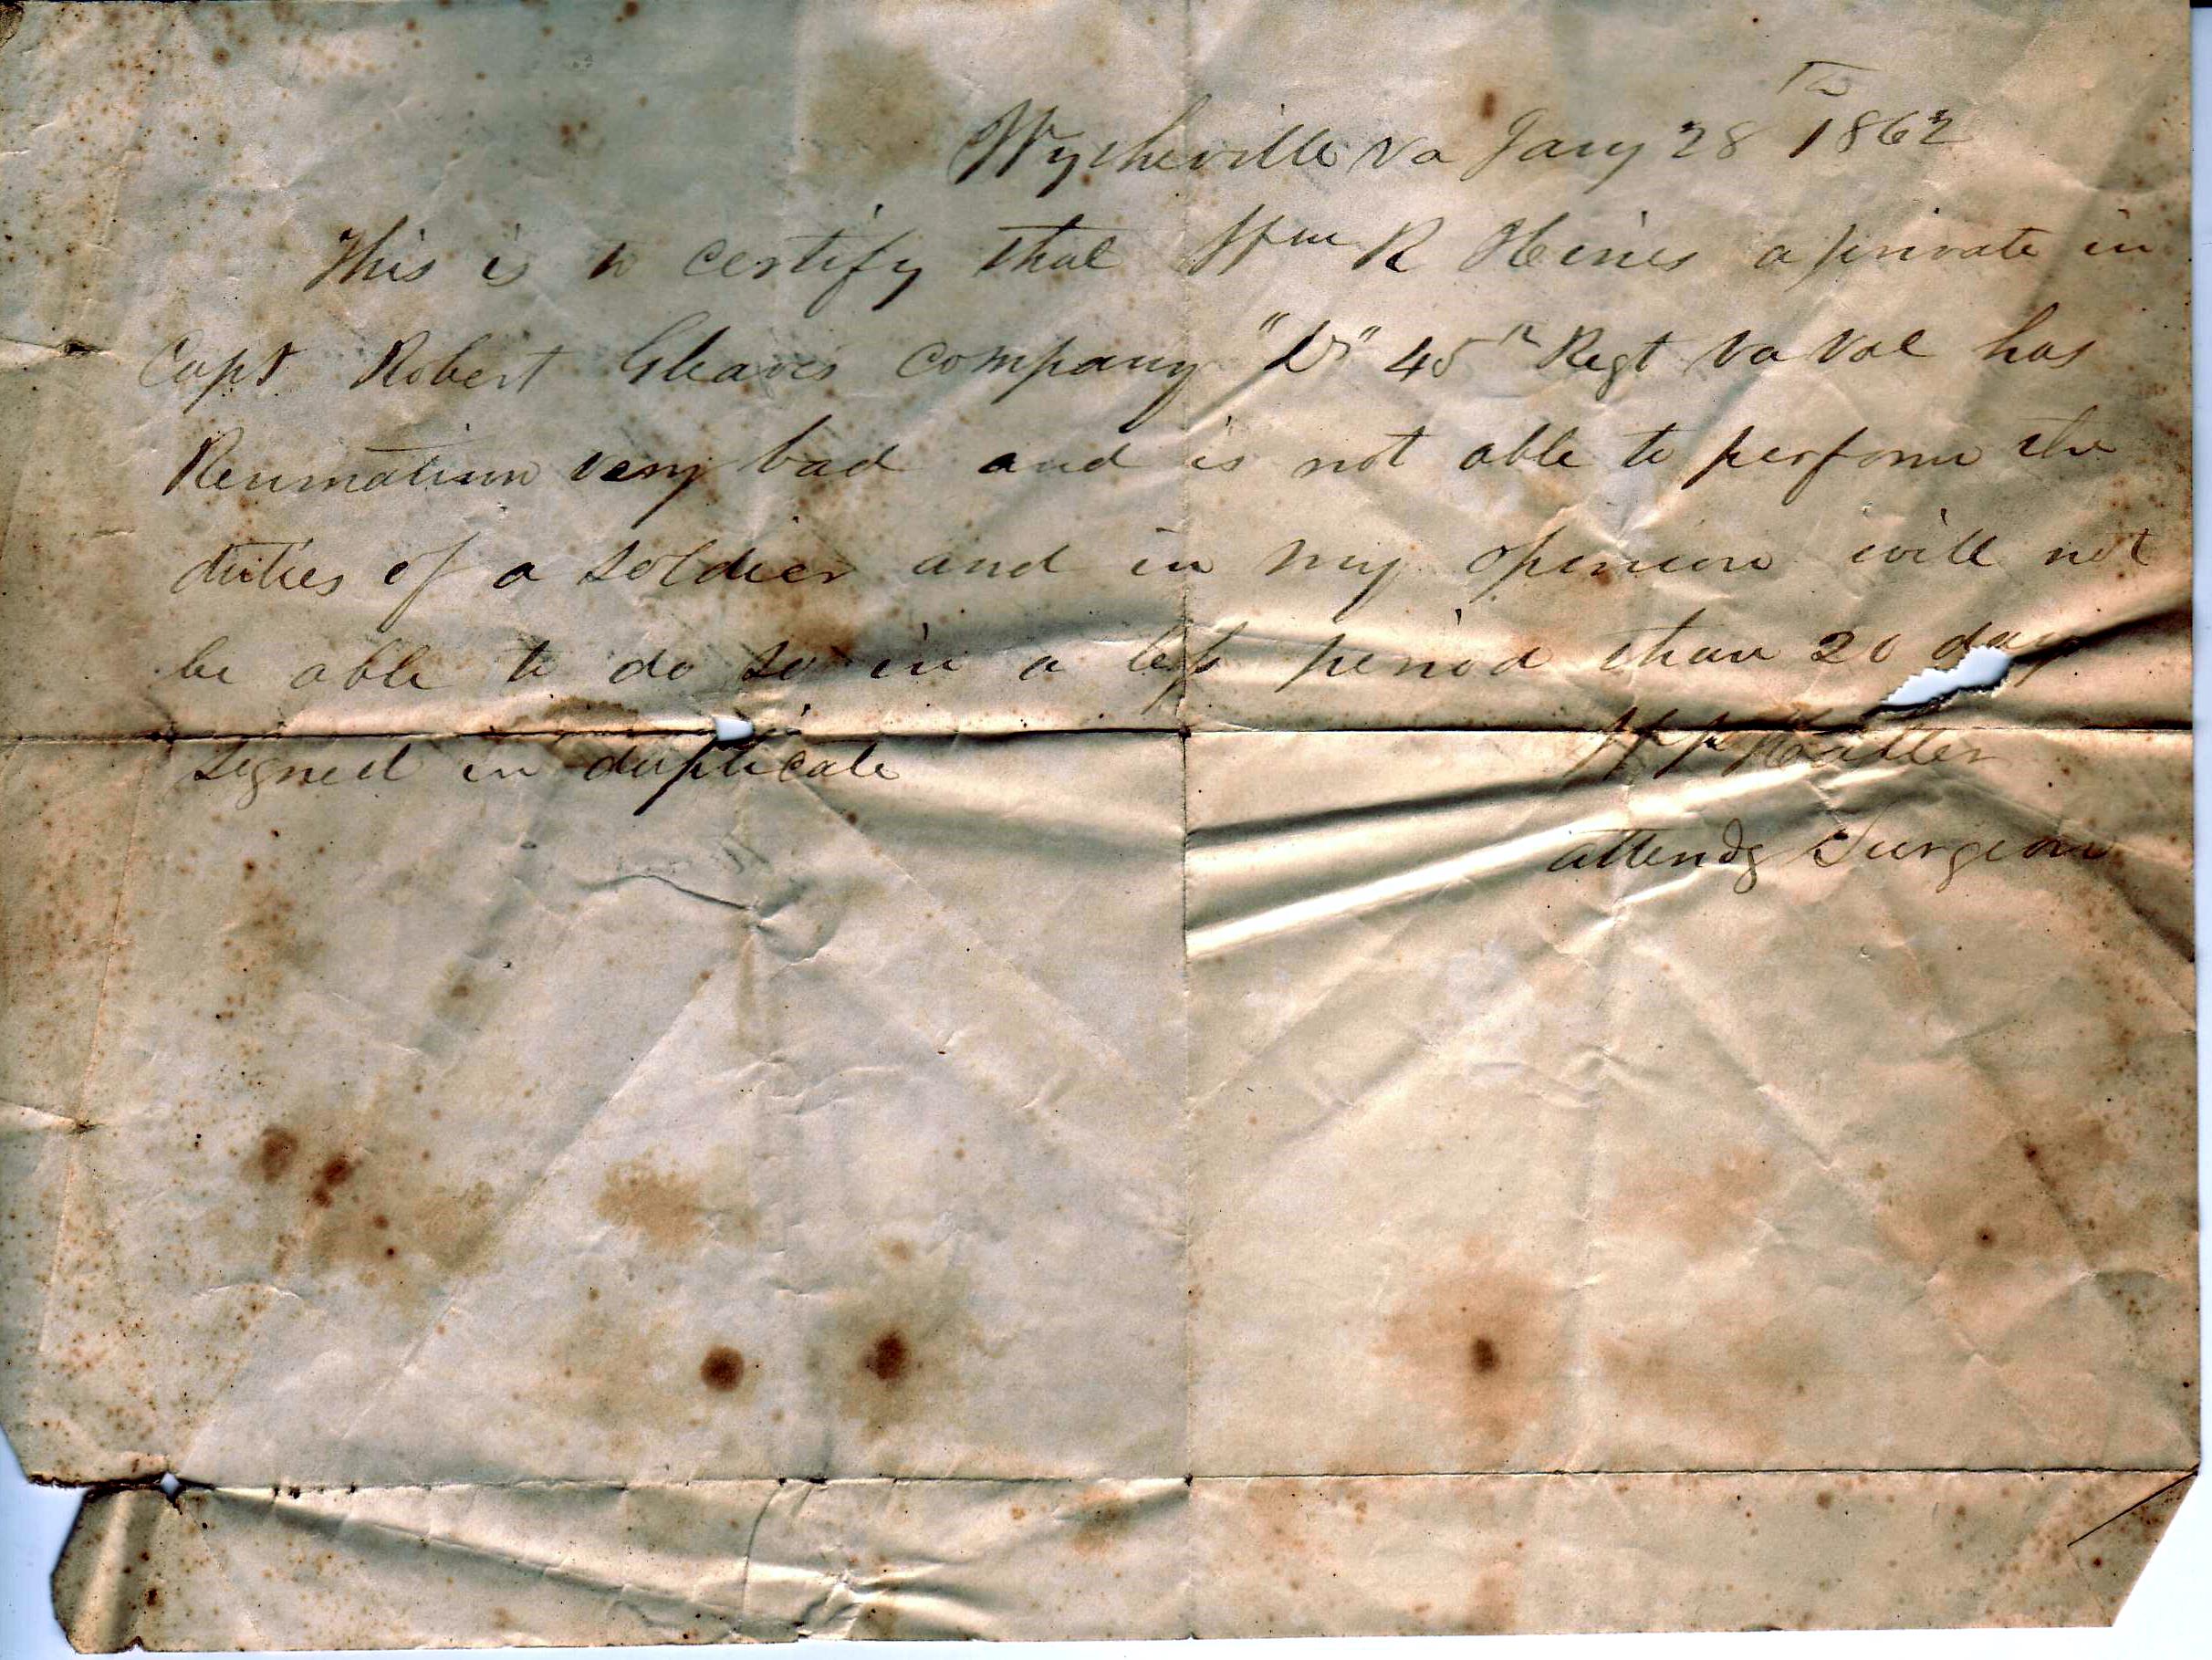 Wytheville Va Jany 28th 1862
This is to certify that Wm R Hines a private in
Capt Robert Gleaves company "D" 45th Regt Va Vol has
Reumatism very bad and is not able to perform the
duties of a soldier and in my opinion will not
be able to do so in a less period than 20 days
signed in duplicate
attendg Surgeon